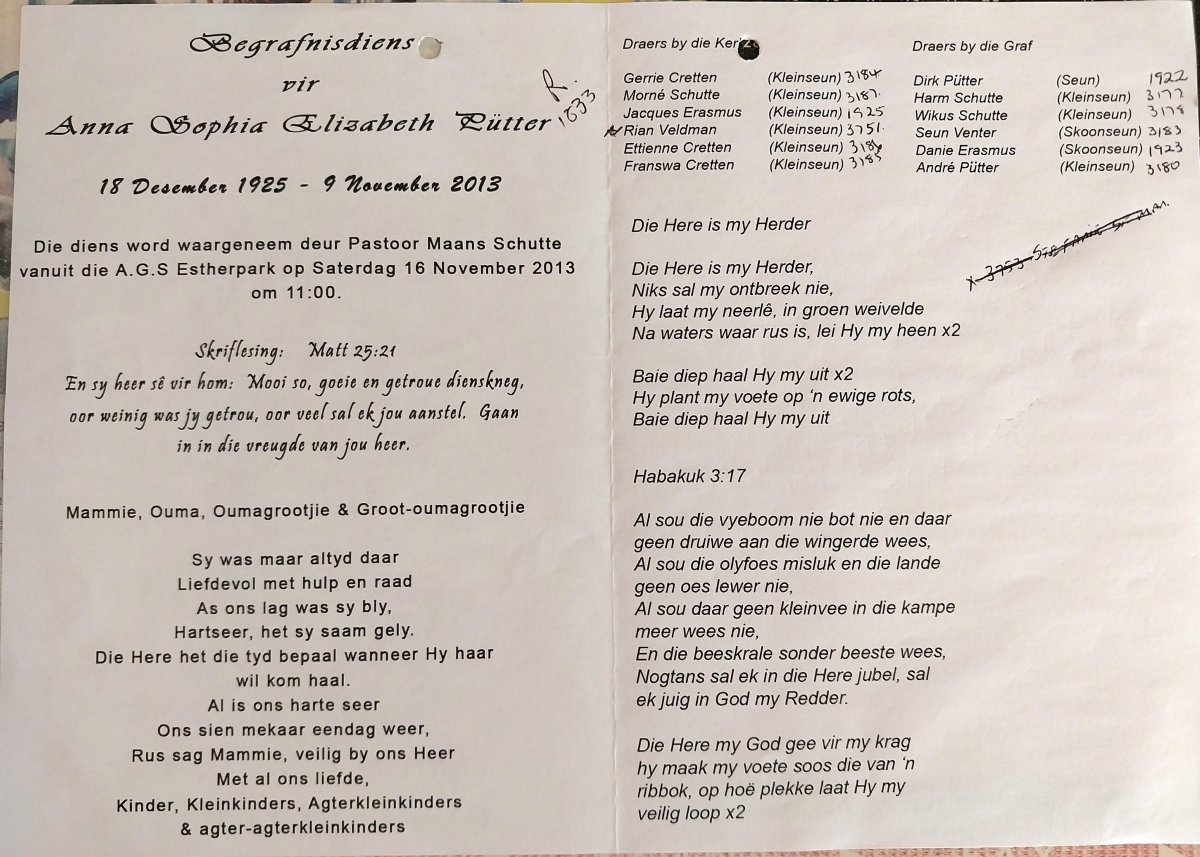 Begrafnisdiens
vir
Anna Sophia Elizabeth Pütter
R.
1833
18 Desember 1925 - 9 November 2013
Die diens word waargeneem deur Pastoor Maans Schutte
vanuit die A.G.S Estherpark op Saterdag 16 November 2013
om 11:00.
Skriflesing: Matt 25:21
En sy heer sê vir hom: Mooi so, goeie en getroue dienskneg,
oor weinig was jy getrou, oor veel sal ek jou aanstel. Gaan
in in die vreugde van jou heer.
Mammie, Ouma, Oumagrootjie & Groot-oumagrootjie
Sy was maar altyd daar
Liefdevol met hulp en raad
As ons lag was sy bly,
Hartseer, het sy saam gely.
Die Here het die tyd bepaal wanneer Hy haar
wil kom haal.
Al is ons harte seer
Ons sien mekaar eendag weer,
Rus sag Mammie, veilig by ons Heer
Met al ons liefde,
Kinder, Kleinkinders, Agterkleinkinders
& agter-agterkleinkinders
Draers by die
Gerrie Cretten (Kleinseun) 3184
Morné Schutte (Kleinseun) 3187.
Jacques Erasmus (Kleinseun) 1925
Rian Veldman (Kleinseun) 3751.
Ettienne Cretten (Kleinseun)
Franswa Cretten (Kleinseun) 3185
Draers by die Graf
Dirk Pütter (Seun) 1922
Harm Schutte (Kleinseun) 3177
Wikus Schutte (Kleinseun) 3178
Seun Venter (Skoonseun) 3183
Danie Erasmus (Skoonseun) 1923
André Pütter (Kleinseun) 3180
Die Here is my Herder
Die Here is my Herder,
Niks sal my ontbreek nie,
Hy laat my neerlê, in groen weivelde
Na waters waar rus is, lei Hy my heen x2
Baie diep haal Hy my uit x2
Hy plant my voete op ‘n ewige rots,
Baie diep haal Hy my uit
Habakuk 3:17
Al sou die vyeboom nie bot nie en daar
geen druiwe aan die wingerde wees,
Al sou die olyfoes misluk en die lande
geen oes lewer nie,
Al sou daar geen kleinvee in die kampe
meer wees nie,
En die beeskrale sonder beeste wees,
Nogtans sal ek in die Here jubel, sal
ek juig in God my Redder.
Die Here my God gee vir my krag
hy maak my voete soos die van ‘n
ribbok, op hoë plekke laat Hy my
veilig loop x2